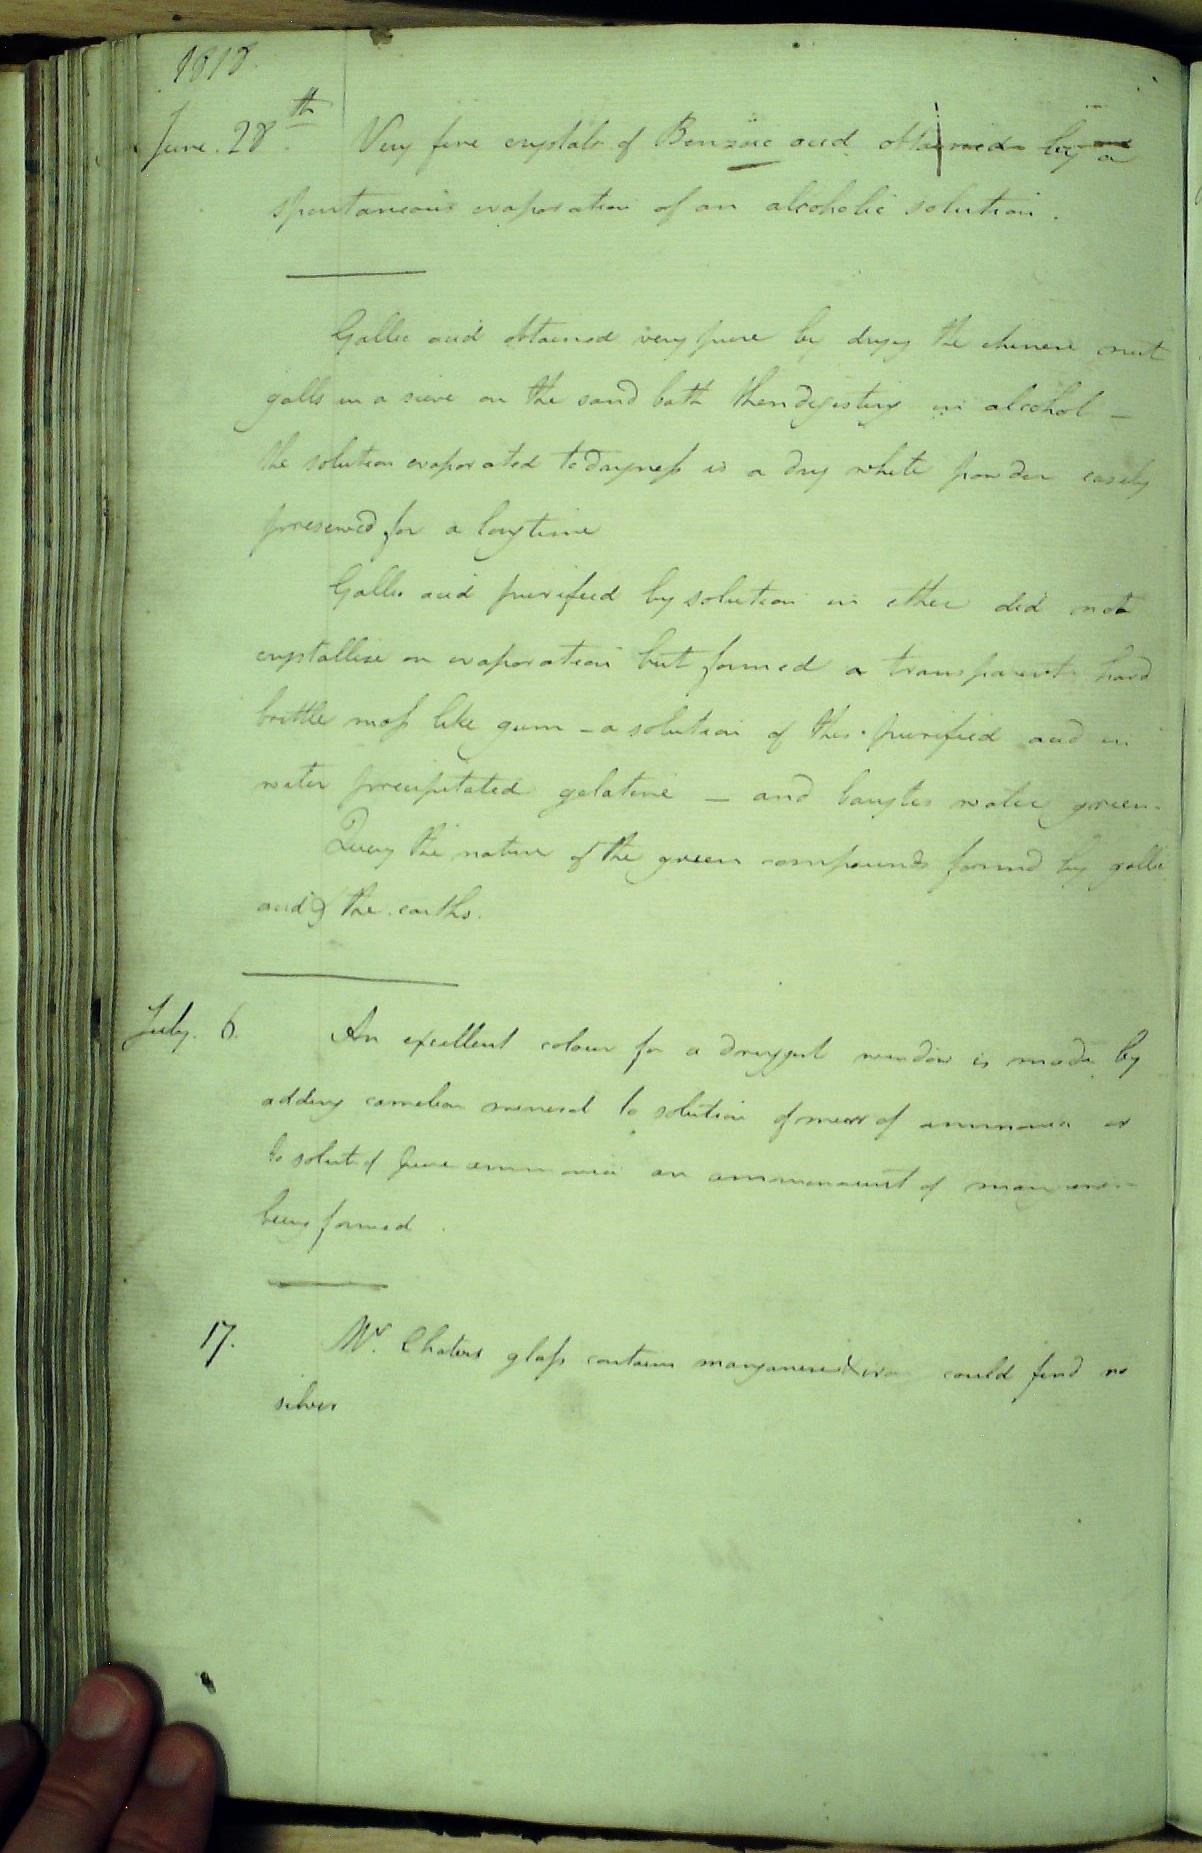 1818.
June. 28th. Very fine crystals of Benzoic acid obtained by a
spontaneous evaporation of an alcoholic solution.
Gallic acid obtained very pure by drying the chinese nut
galls in a sieve on the sand bath then digesting in alcohol –
the solution evaporated to dryness is a dry white powder easily
preserved for a long time
Gallic acid purified by solution in ether did not
crystallise on evaporation but formed a transparent hard
brittle mass like gum – a solution of this purified acid in
water precipitated gelatine – and barytes water green.
Query the nature of the green compounds formed by gallic
acid & the earths.
July. 6. An excellent colour for a druggist window is made by
adding camelion mineral to solution of mur of ammonia or
to solut of pure ammonia an ammoniuret of manganese
being formed.
17. Mr. Chaters glass contains manganese & iron could find no
silver